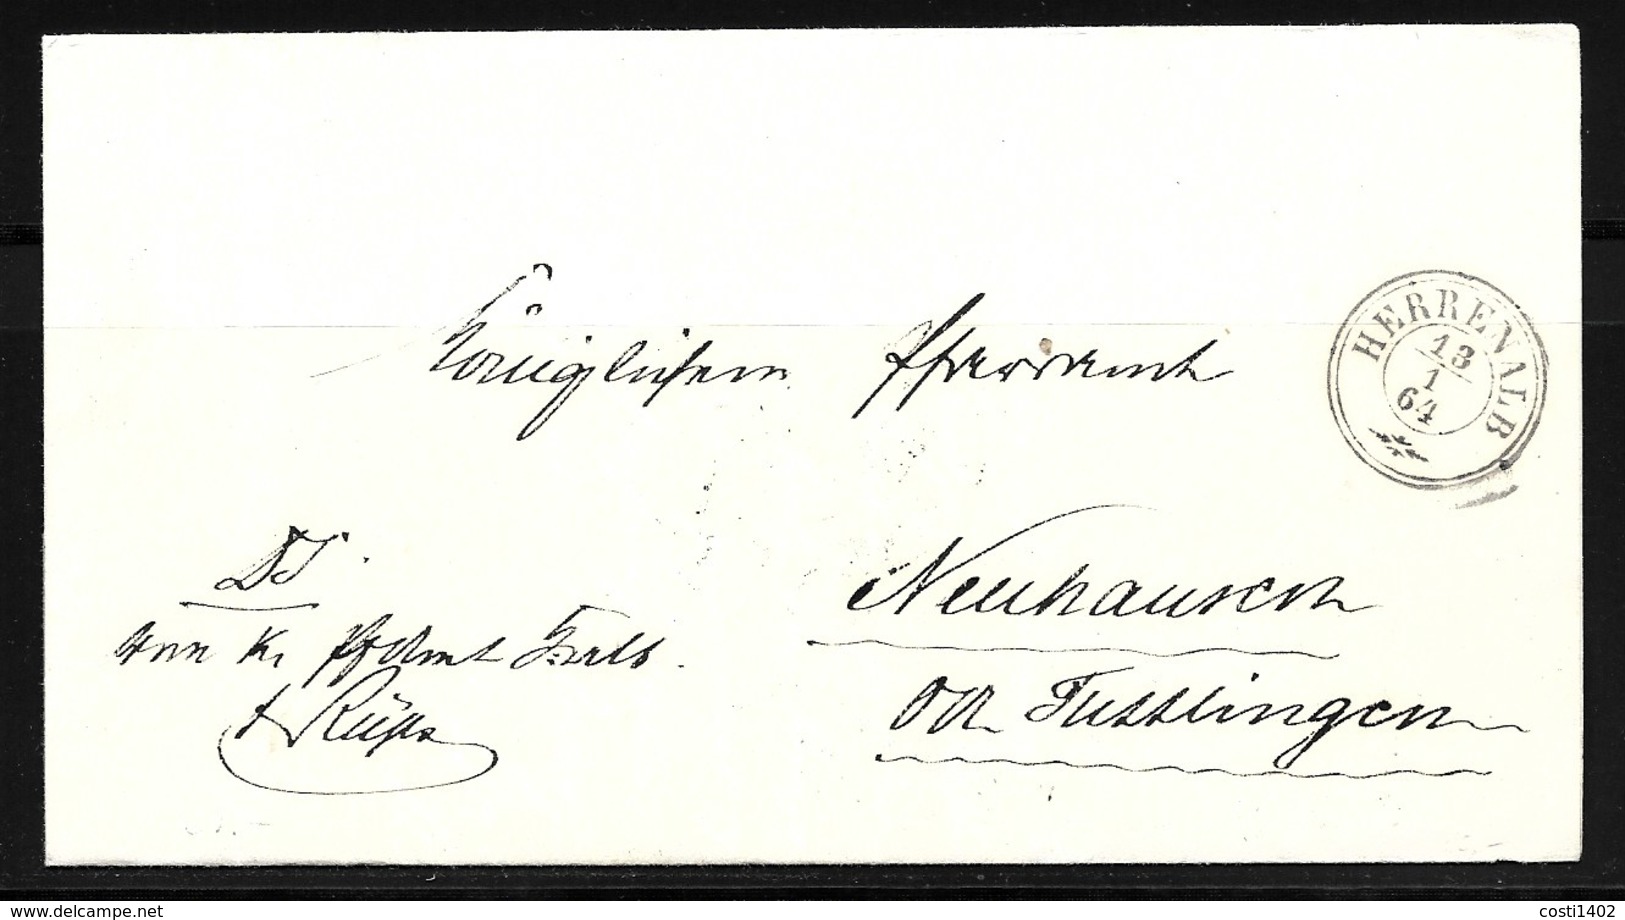 Königlichem Pfarramt
HERRENALB
13
1
64
DS.
von K. Pfdamt
Neuhausen
OA Tuttlingen
www.delcampe.net
costi1402